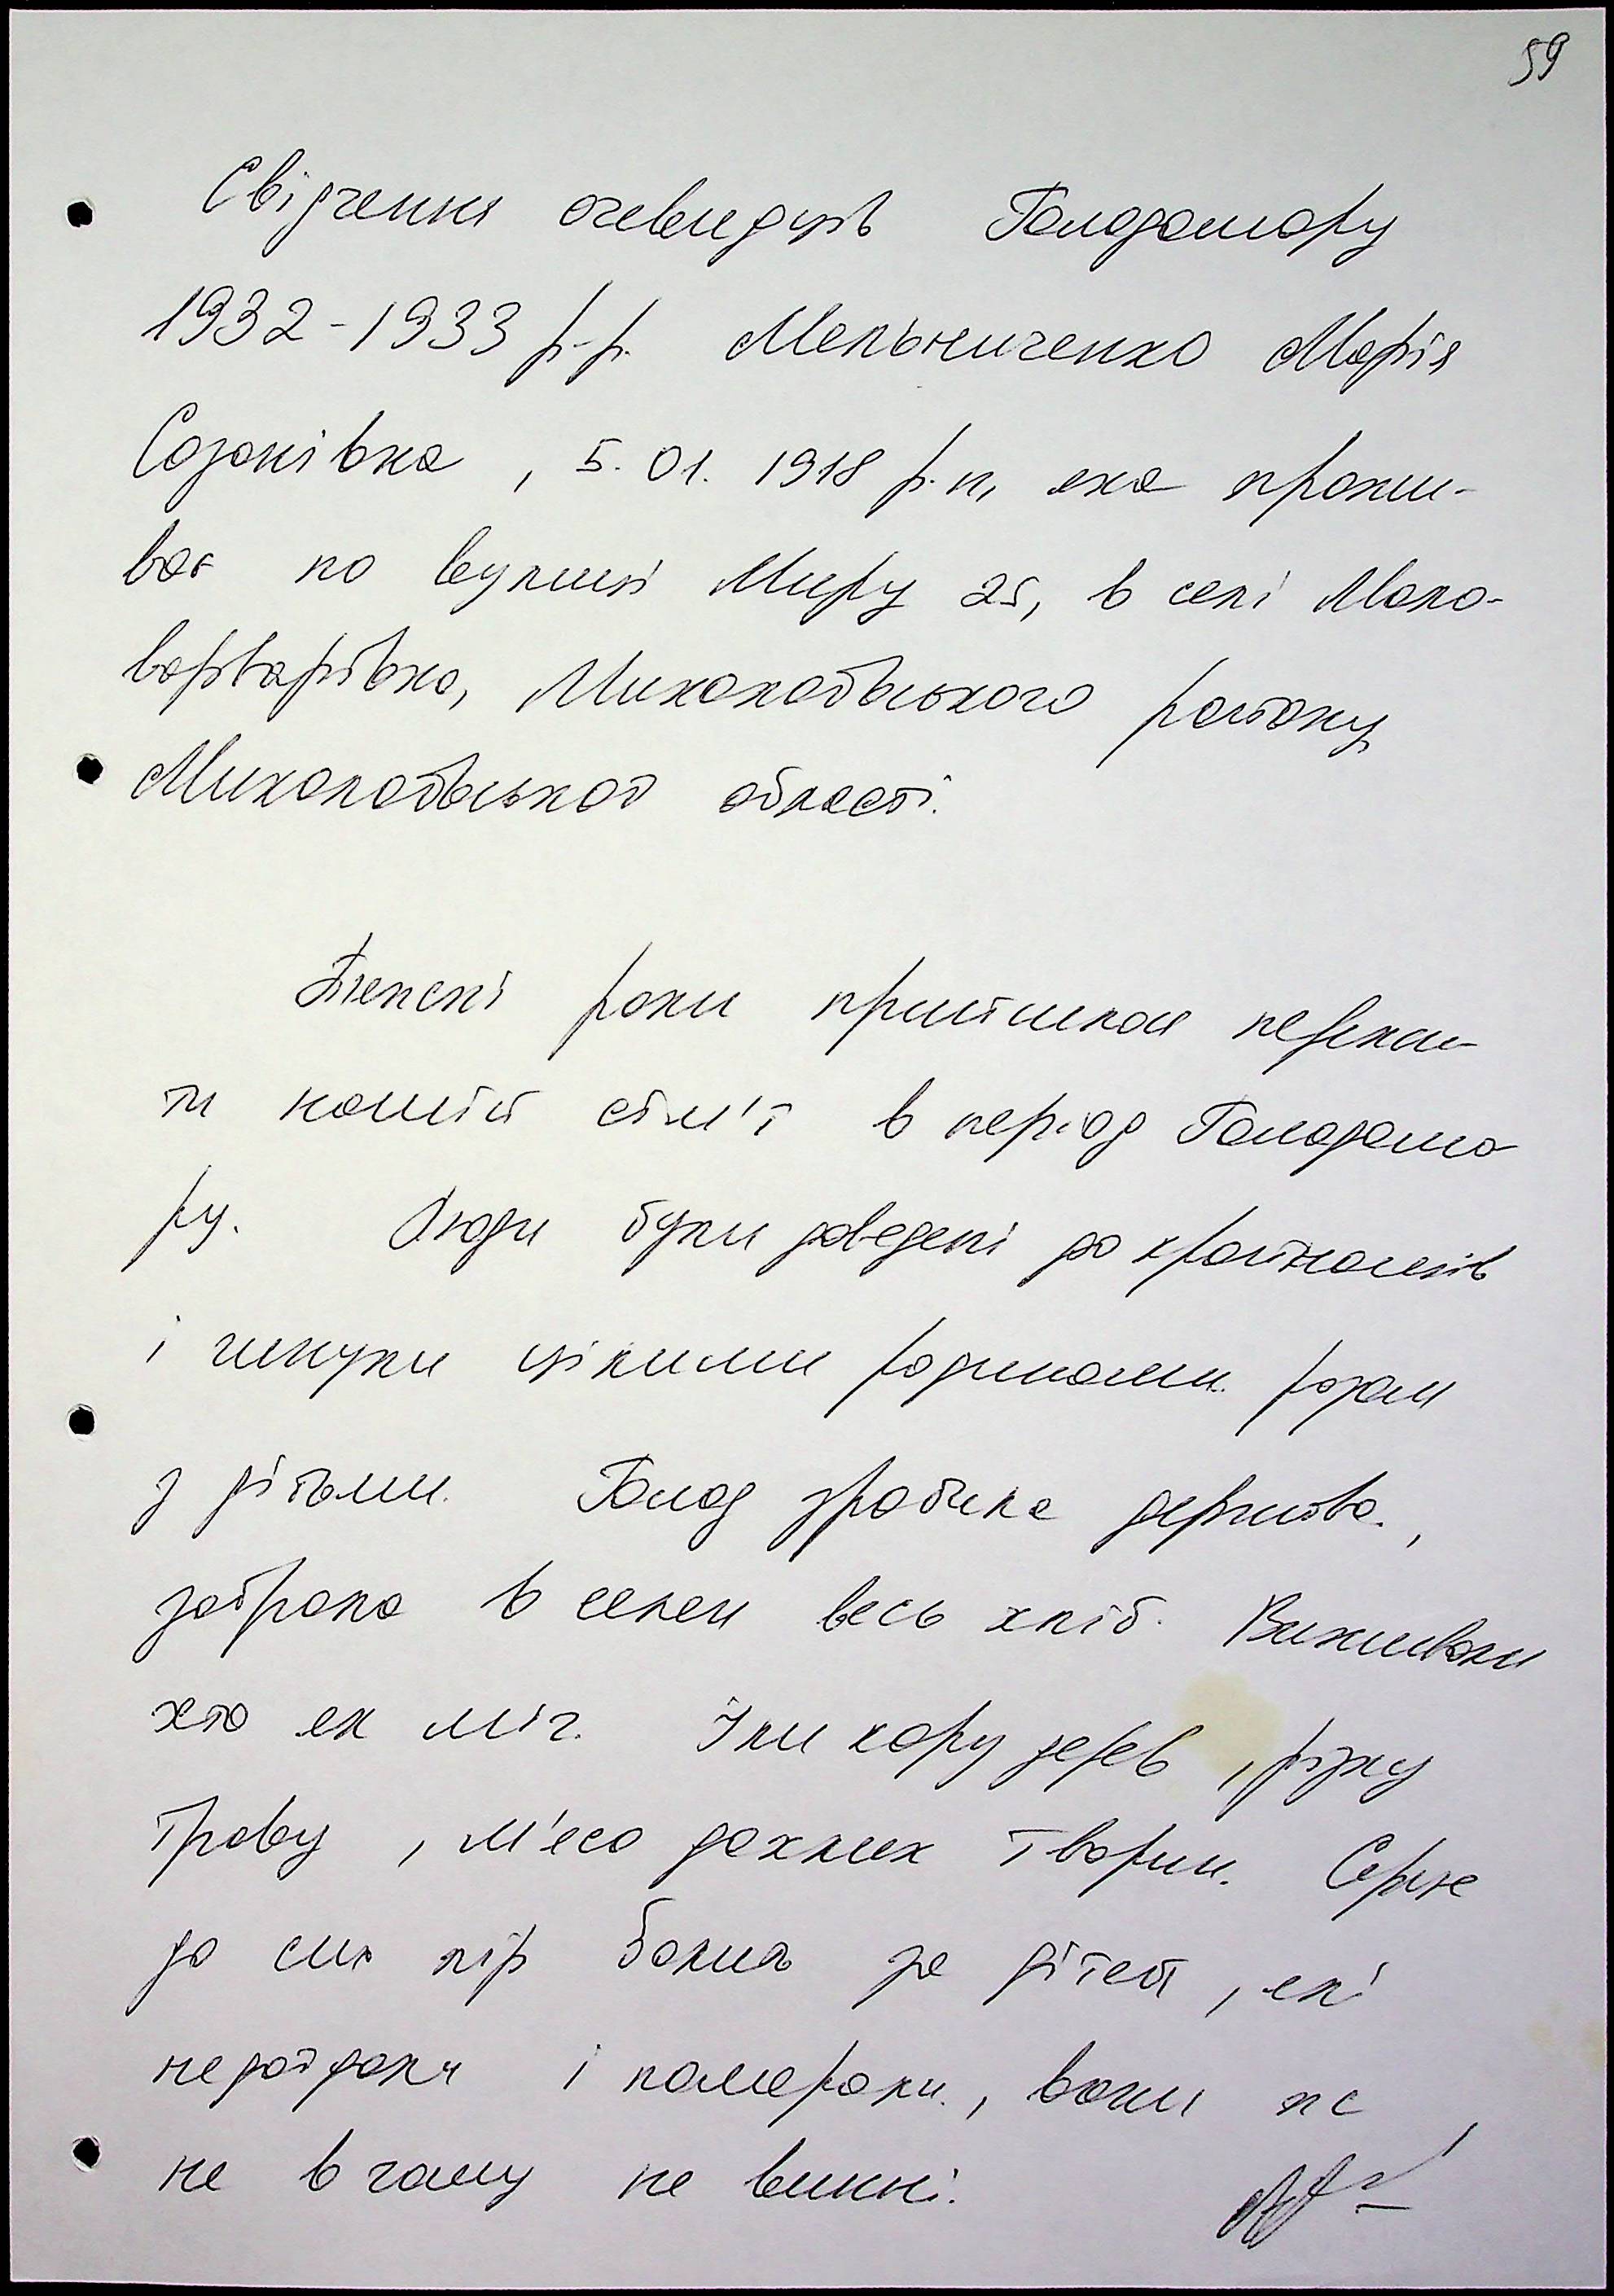 59
Свідчення очевидців Голодомору
1932-1933 р.р. Мельниченко Марія
Созонівна, 5.01.1918 р.н, яка прожи-
ває по вулиці Миру 25, в селі Мало-
варварівка, Миколаївського району
Миколаївської області.
Тяжкі роки прийшлося пережи-
ти нашій сім'ї в період Голодомо
ру. Люди були доведені до крайнощів
і гинули цілими родинами разом
з дітьми. Голод зробила держава,
забрала в селян весь хліб. Виживали
хто як міг. Їли кору дерев, різну
траву, м'ясо дохлих тварин. Серце
до сих пір болить за дітей, які
недоїдали і помирали, вони не
не в чому не винні.